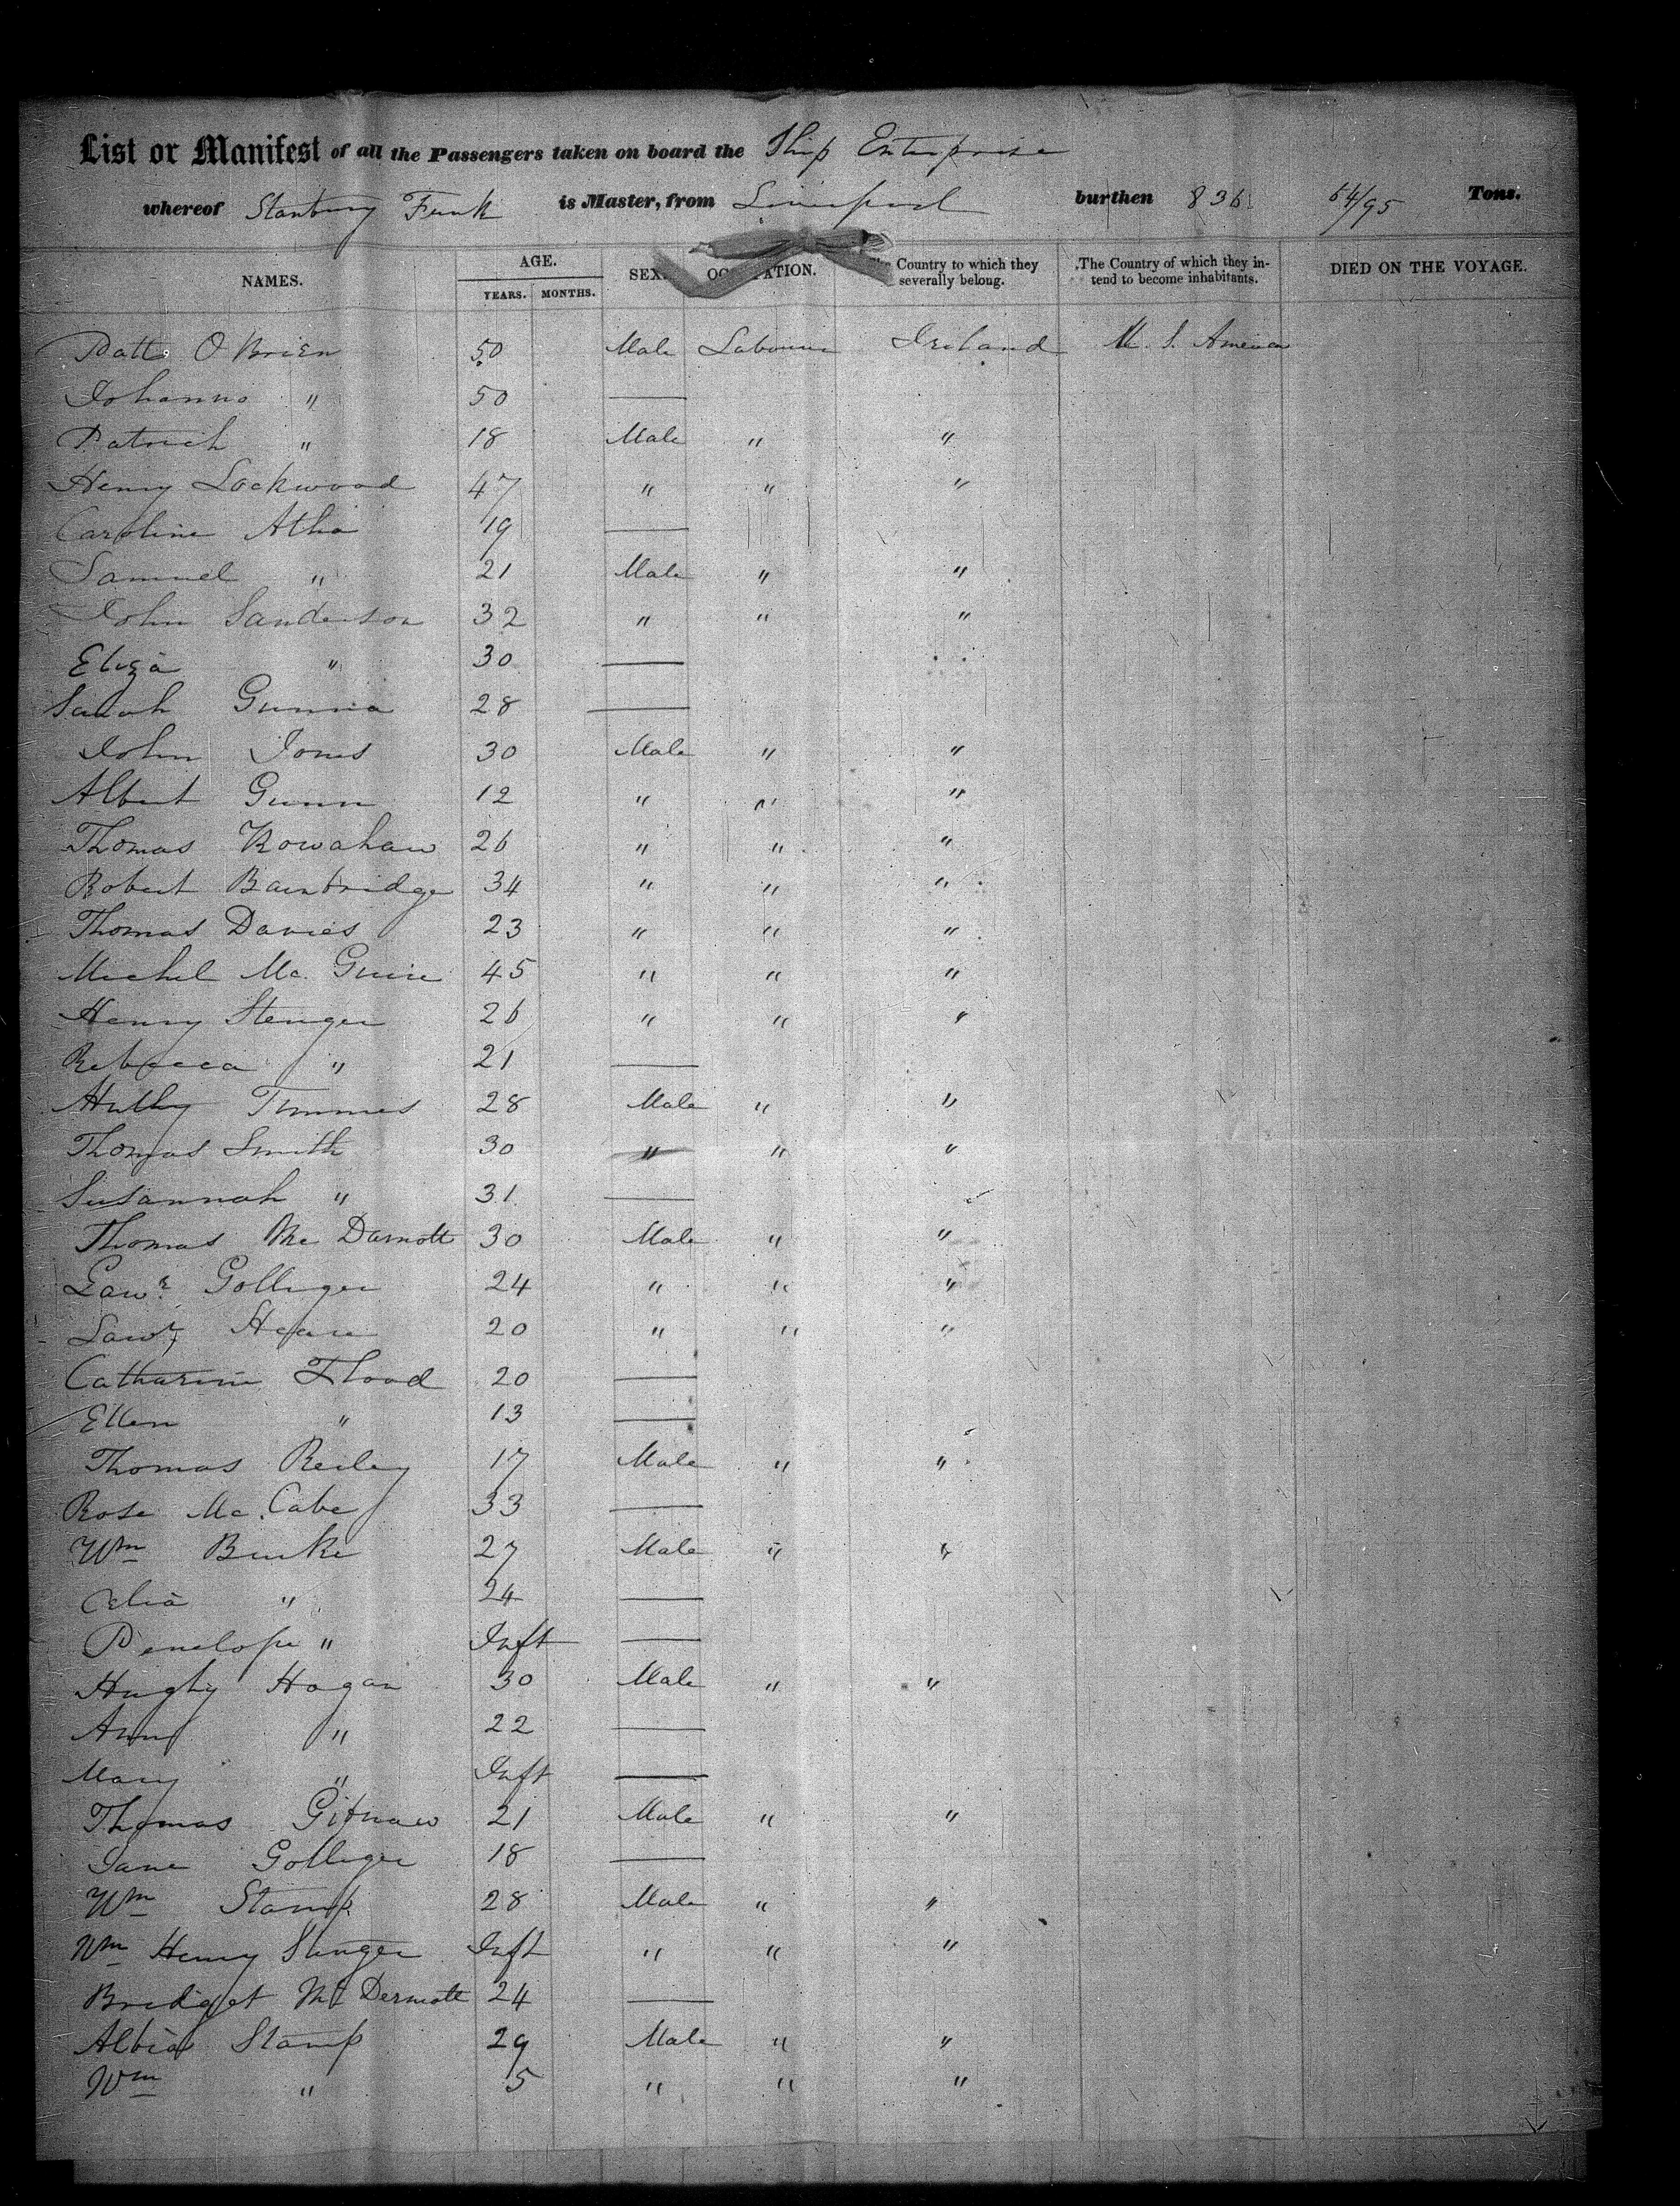 List or Manifest of all the Passengers taken on board the Ship Enterprise
whereof Stanbury Funk is Master, from Liverpool burthen 836 54/95 Tons.
NAMES. AGE. YEARS. MONTHS. SEX. OCCUPATION. The Country to which they severally belong. The Country of which they intend to become inhabitants. DIED ON THE VOYAGE.
Patt. O Brien 50 Male Labourer Ireland U. S. America
Johanna " 50 —
Patrick " 18 Male " "
Henry Lockwood 47 " " "
Caroline Atha 19 —
Samuel " 21 Male " "
John Sanderson 32 " " "
Eliza " 30 —
Sarah 28 —
John Jones 30 Male " "
Albert Gunn 12 " " "
Thomas 26 " " "
Robert Bainbridge 34 " " "
Thomas Davies 23 " " "
Michel Mc. Guire 45 " " "
Henry Stenger 26 " " "
Rebecca " 21 —
Timmes 28 Male " "
Thomas Smith 30 " " "
Susannah " 31 —
Thomas Mc Darmott 30 Male " "
Lawr. Golliger 24 " " "
20 " " "
Catharine Flood 20 —
Ellen " 13 —
Thomas Reiley 17 Male " "
Rose Mc. Cabe 33 —
Wm Burke 27 Male " "
Celia " 24 —
Penelope " Inft —
Hughy Hogan 30 Male " "
Ann " 22 —
Mary " Inft —
Thomas 21 Male " "
Jane Golliger 18 —
Wm Stamp 28 Male " "
Wm Henry Stenger Inft " " "
Bridget Mc Dermott 24 —
Stamp 29 Male " "
Wm " 5 " " "